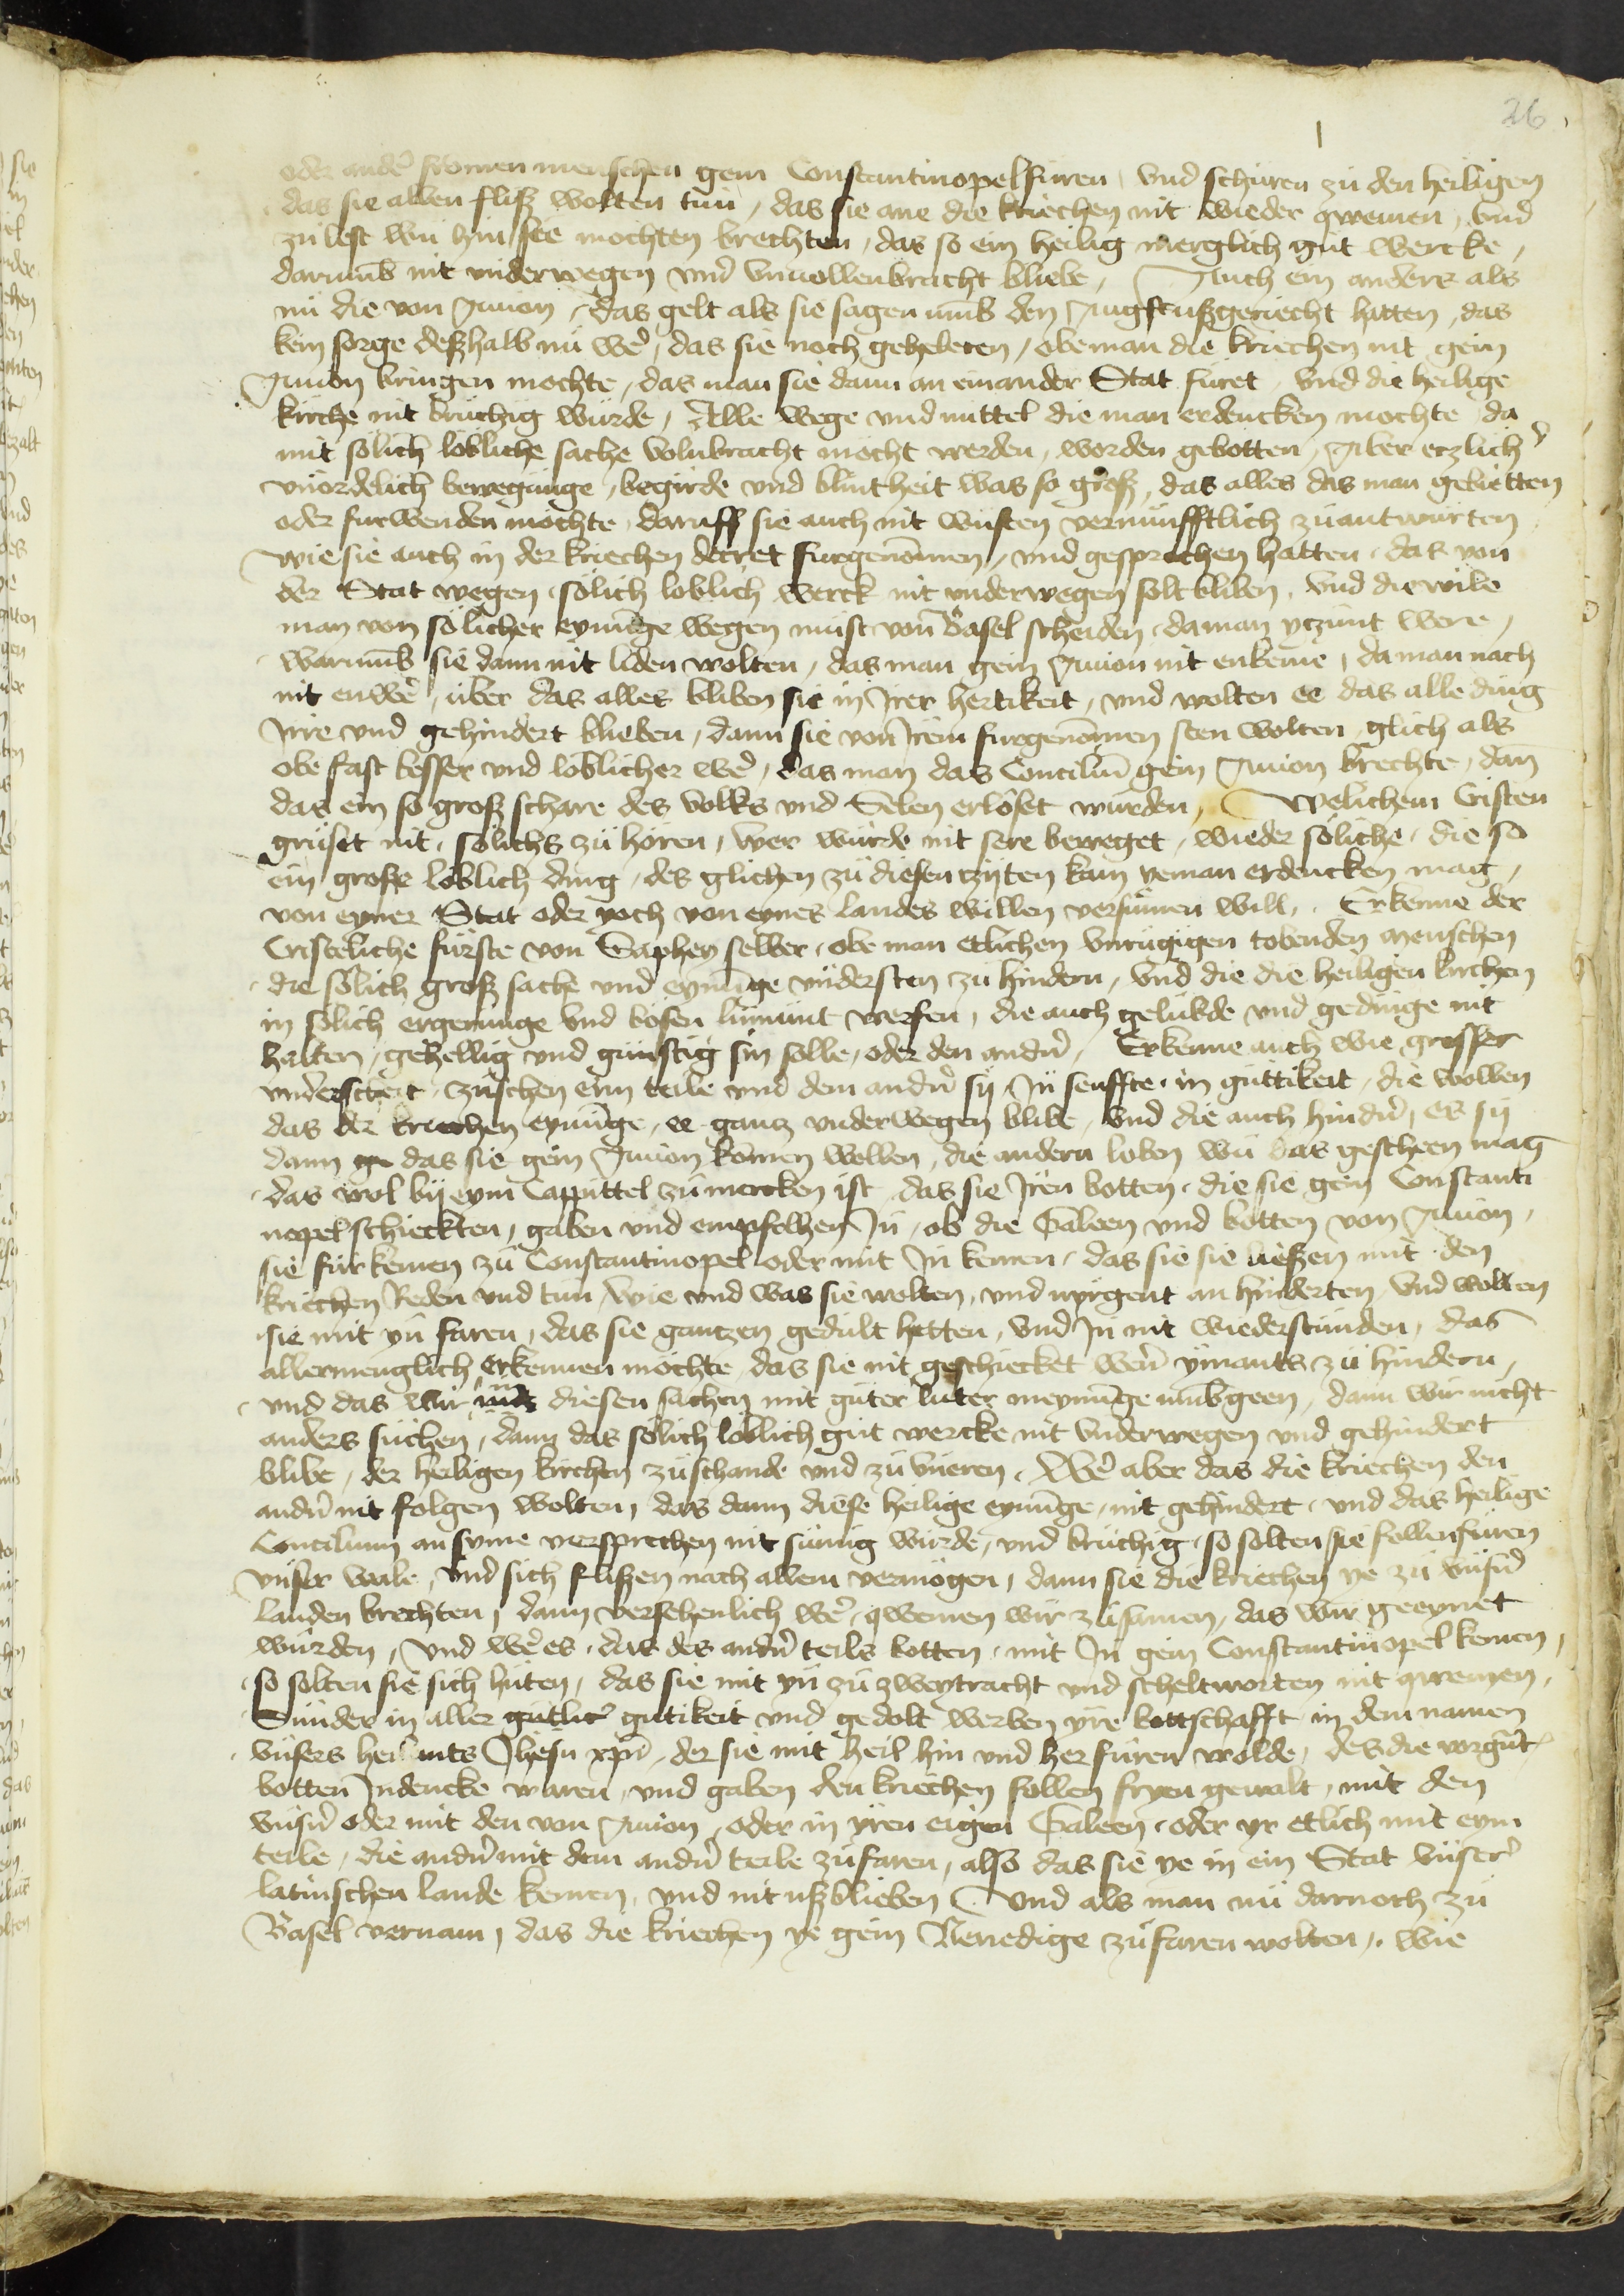 26
oder ander fromen menschen gein Constantinopel furen, vnd schuren zu den heiligen
das sie allen fliß wolten tun, das sie ane die kriechen nit wieder qwemen, vnd
zu lest wu hin sie mochten brechten, das so ein heilig merglich gut wercke,
darumb nit vnderwegen vnd vnuollenbracht bliebe, Auch ein anders als
nu die von Auion, das gelt als sie sagen vmb den ußgeriecht hatten, das
kein sorge deßhalb nu we͛, das sie noch gehebeten, obe man die kriechen nit gein
Auion bringen mochte, das man sie dann an einander Stat furet, vnd die heilige
kirche nit bruchig wurde, Alle wege vnd mittel die man erdencken mochte da
mit solich lobliche sache volnbracht mocht werden, worden gebotten, Aber etzlich͛
vnordelich bewegunge, begirde vnd blintheit was so groß, das alles das man gebietten
oder furwenden mochte, daruff sie auch nit wusten vernunfftlich zu antwurten
wie sie auch in der kriechen decret furgenōmen, vnd gesprochen hatten, das von
der Stat wegen, solich loblich werck nit vnderwegen solt bliben, vnd die wile
man von solicher eynūge wegen must von Basel scheiden, da man yczunt were,
warumb sie dann nit liden wolten, das man gein Auion nit enkeme, da man nach
nit enwe͛, uber das alles bliben sie in Irer hertikeit, vnd wolten ee das alle ding
Irre vnd gehindert blieben, dann sie von Irem furgenōmen sten wolten, glich als
obe fast besser vnd loblicher we͛, das man das Conciliū gein Auion brechte, dan̄
das ein so groß schare des volks vnd Selen erloset wurden, Welichem Cristen
gruset nit, solichs zu horen, wer wurde nit sere beweget, wieder soliche, die so
ein große loblich ding, des glichen zu diesen czijten kum yeman erdencken mag,
von eyner Stat oder yoch von eynes landes willen versumen will, Erkenne der
Cristeliche furste von Saphey selber, obe man etlichen vnrugigen tobenden menschen
die solich groß sache vnd eynūge vndersten zu hindern, vnd die die heiligen kirchen
in solich ergerunge vnd bosen lumunt werfen, die auch gelubde vnd gedinge nit
halten, gehellig vnd gunstig sin solle, oder den andn͛, Erkenne auch wie grosser
vnderscheit, zuschen eim teile vnd dem andn͛ sij, In senffte, in guttikeit, die wollen
das der kriechen eynūge, ee gantz vnderwegen blibe, vnd die auch hindn͛, es sij
dann das sie gein Auion komen wollen, die andern loben wu das gescheen mag
das wol bij eym Cappittel zu mercken ist, das sie Iren botten, die sie gein Constanti
nopel schieckten, gaben vnd empfolhen In, ob die Galeen vnd botten von Auion,
sie fur kemen zu Constantinopel oder mit In kemen, das sie sie ließen mit den
kriechen Reden vnd tun, wie vnd was sie wolten, vnd nyrgent an hinderten, vnd wolten
sie mit yn faren, das sie gantzen gedult hetten, vnd In nit wiederstunden, das
allermenglich erkennen mochte, das sie nit geschiecket wern͛ ymants zu hindern,
vnd das wir diesen sachen mit guter luter meynūge vmbgeen, dann wir nicht
anders suchen, dann das solich loblich gut wercke nit vnderwegen vnd gehindert
blibe, der heiligen kirchen zu schande vnd zu vneren, We͛ aber das die kriechen den
andn͛ nit folgen wolten, das dann diese heilige eynūge, nit gehindert, vnd das heilige
Concilium an syme versprechen nit sumig wurde, vnd bruchig, so solten sie follenfuren
vnser wale, vnd sich flißen nach allem vermogen, dann sie die kriechen ye zu vnsn͛
landen brechten, dann versehenlich we͛, qwemen wir zusamen, das wir geeynet
wurden, vnd we͛ es, das des andn͛ teils botten, mit In gein Constantinopel kemen,
so solten sie sich huten, das sie mit yn zu zweytracht vnd scheltworten nit qwemen,
Sunder in aller gutlic͛ gutikeit vnd gedolt werben yre bottschafft in dem namen
vnsers heilants Jhesu xp̄i, der sie mit heil hin vnd her furen wolde, des die vorgn̄t
botten Indencke waren, vnd gaben den kriechen follen fryen gewalt, mit den
vnsn͛ oder mit den von Auion, oder in yren eigen Galeen, oder yr etlich mit eym
teile, die andn͛ mit dem andn͛ teile zu faren, also das sie ye in ein Stat vnser͛
latinschen lande kemen, vnd nit ußblieben, Vnd als man nu darnoch zu
Basel vernam, das die kriechen ye gein Venedige zu faren wolten, wie